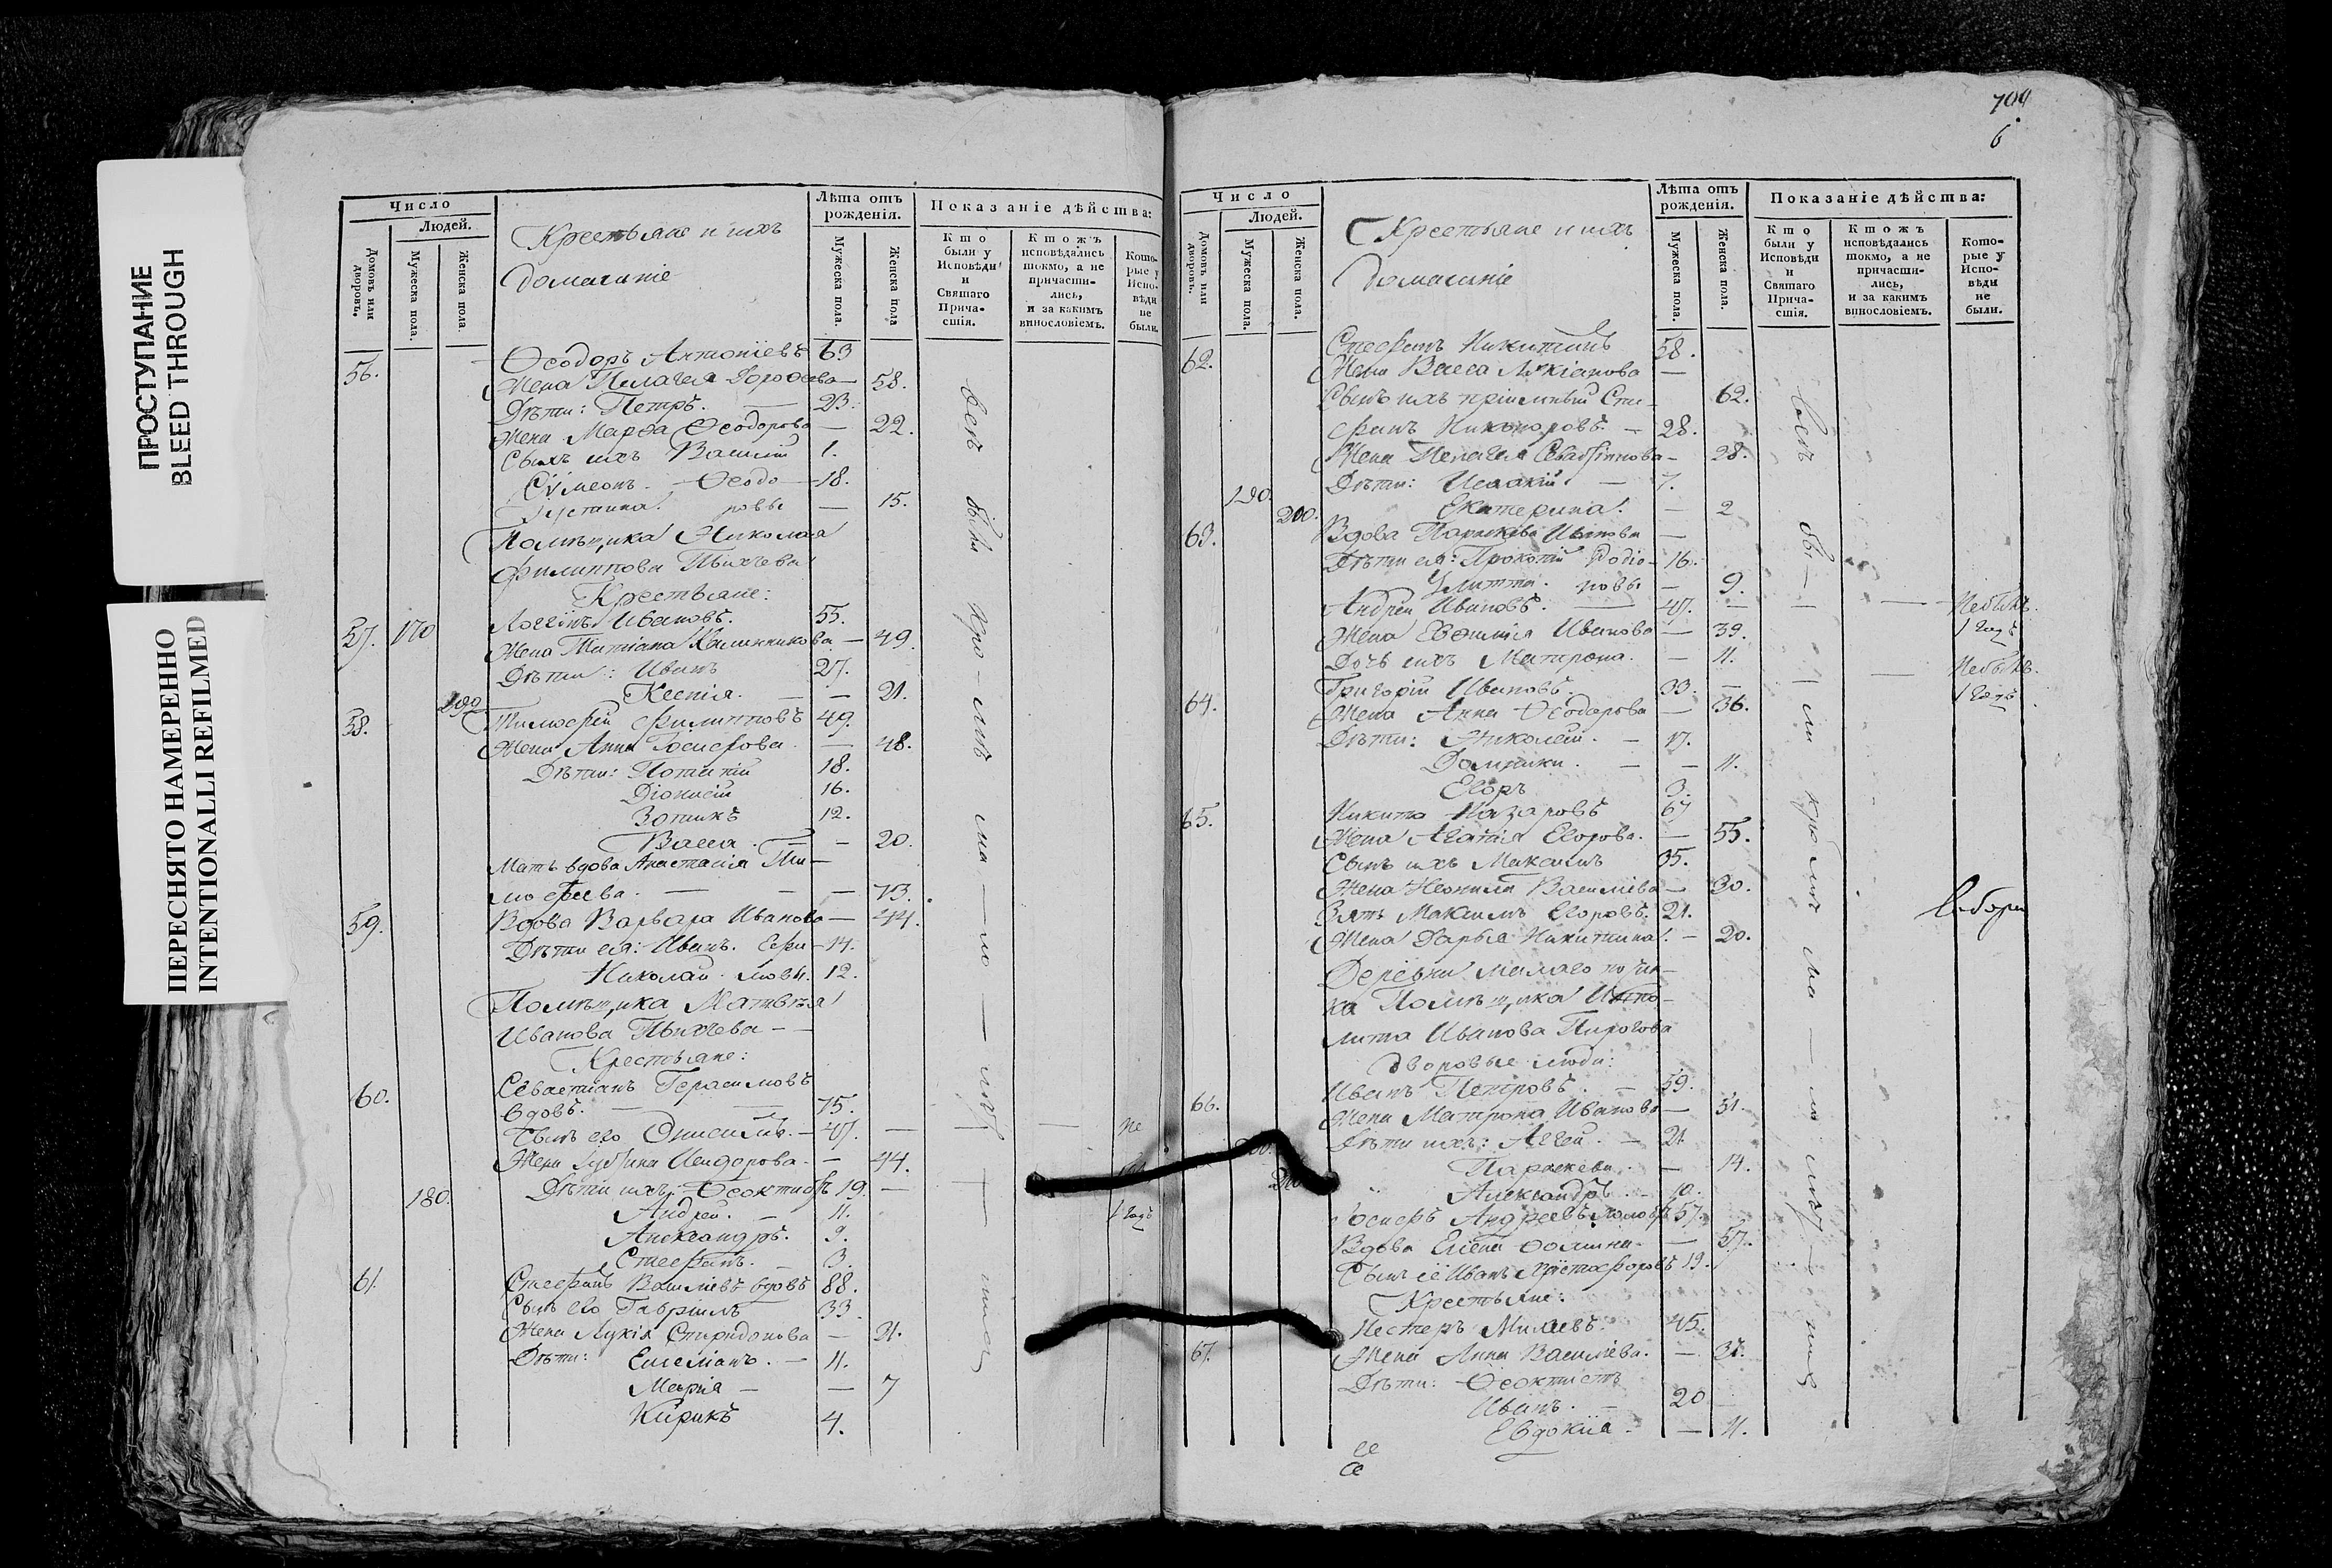 ПРОСТУПАНИЕ
BLEED THROUGH
ПЕРЕСНЯТО НАМЕРЕННО
INTENTIONALLI REFILMED
Число
Людей.
Домовъ или дворовъ.
Мужеска пола.
Женска пола.
Крестьяне и ихъ
домашніе
Лѣта отъ рожденія.
Мужеска пола.
Женска пола
Показаніе дѣйства:
Кто были у Исповѣди и Святаго Прича-стія.
Ктожъ исповѣдались токмо, а не причасти-лись, и за какимъ винословіемъ.
Кото-рые у Испо-вѣди не были.
56. Ѳеодоръ Антоніевъ 63
Жена Пелагея 58.
Дѣти: Петръ. 23.
Жена Марѳа Ѳеодорова — 22.
Сынъ ихъ Василій 1.
Сѵмеонъ. Ѳеодо— 18.
Іустина. ровы — 15.
Помѣщика Николая
Филиппова Пыхчева
Крестьяне:
57. 170 Логгинъ Ивановъ. 55.
Жена Татіана Калинникова — 49.
Дѣти: Иванъ 27.
190 Ксенія. — — 21.
58. Тимофей Филипповъ 49.
Жена Анна Іосифова. — 48.
Дѣти: Потапій 18.
Діонисій 16.
Зотикъ 12.
Васса. — 20.
Мать вдова Анастасія Ти—
мофеева. — — — 73.
59. Вдова Варвара Иванова — 44.
Дѣти ея: Иванъ. Ефи— 14.
Николай. мовы. 12.
Помѣщика Матвѣя
Иванова Пыхчева — —
Крестьяне:
60. Севастіанъ Герасимовъ
вдовъ. — — 75.
Сынъ его Онисимъ. — 47. — — не
Жена Исидорова. — — 44.
180. Дѣти ихъ: Ѳеоктистъ 19. —
Андрей. — 11. 1 годъ
Александръ. 9.
Стефанъ. — 3.
61. Стефанъ Василіевъ вдовъ 88.
Сынъ его Гавріилъ 33.
Жена Лукія Спиридонова — 21.
Дѣти: Емеліанъ. — 11.
Марія — — 7
Кирикъ 4.
всѣ были
704
6
Число
Людей.
Домовъ или дворовъ.
Мужеска пола.
Женска пола.
Крестьяне и ихъ
домашніе
Лѣта отъ рожденія.
Мужеска пола.
Женска пола.
Показаніе дѣйства:
Кто были у Исповѣди и Святаго Прича-стія.
Ктожъ исповѣдались токмо, а не причасти-лись, и за какимъ винословіемъ.
Кото-рые у Испо-вѣди не были.
62. Стефанъ Никитинъ 58.
Жена Васса Лукіанова —
Сынъ ихъ пріимный Сте— 62.
фанъ Никаноровъ. — 28.
Жена Пелагея Севастіанова — 28.
190. Дѣти: Исаакій. — 7.
200. Екатерина. — 2
63. Вдова Параскева Иванова —
Дѣти ея: Прокопій Родіо— 16.
Улитта. новы — 9.
Андрей Ивановъ. — 47. — — — Небылъ.
Жена Евфимія Иванова — 39. 1 годъ
Дочь ихъ Матрона. — 11.
64. Григорій Ивановъ. 33. — — — Небылъ. 1 годъ
Жена Анна Ѳеодорова — 36.
Дѣти: Николай. — 17.
Домника. — — 11.
Егоръ 3.
65. Никита Назаровъ 67
Жена Агапія Егорова. — 55.
Сынъ ихъ Максимъ 35.
Жена Неонила Василіева — 30.
Зять Максимъ Егоровъ. 21.
Жена Дарья Никитина. — 20.
Деревни Малаго почин—
ка Помѣщика Иппо—
лита Иванова Пирогова
дворовые люди:
66. Иванъ Петровъ. — 59.
Жена Матрона Иванова — 51.
Дѣти ихъ: Аггей. — 21.
Параскева. — 14.
Александръ. — 10.
Іосифъ Андреевъ холостъ 57.
Вдова Елена Ѳомина — 57.
Сынъ её Иванъ Христофоровъ 19.
Крестьяне:
67. Нестеръ 45.
Жена Анна Василіева. — 31.
Дѣти: Ѳеоктистъ
Иванъ. — 20
Евдокія. — 11.